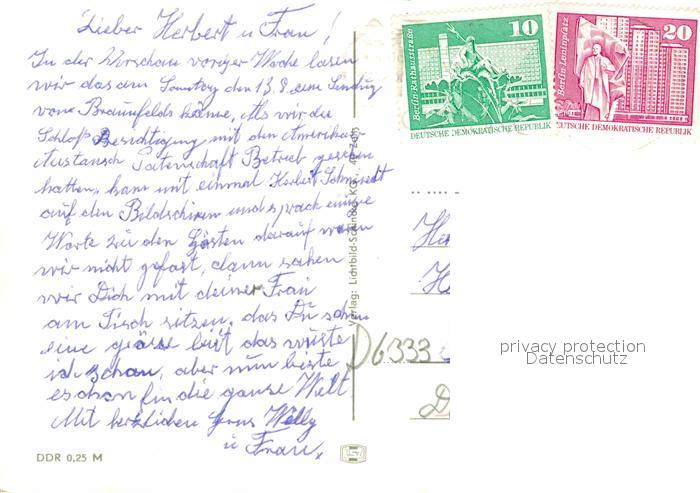 Lieber Herbert u Frau!
In der Vorschau voriger Woche lasen
wir das am Sonntag den 13.8 eine Sendung
von Braunfels käme, Als wir die
Schloß Besichtigung mit den Amerika-
Austausch Patenschaft Betrieb gesehen
hatten, kam mit einmal Herbert Schmidt
auf den Bildschirm und sprach einige
Worte zu den Gästen darauf waren
wir nicht gefast, dann sahen
wir Dich mit deiner Frau
am Tisch sitzen, das Du schon
eine größe bist das wuste
ich schon, aber nun biste
es schon für die ganse Welt
Mit herzlichen Grus Willy
u Frau,
DDR 0,25 M
Verlag: Lichtbild-Schincke KG
10
Berlin-Rathausstraße
DEUTSCHE DEMOKRATISCHE REPUBLIK
20
Berlin-Leninplatz
DEUTSCHE DEMOKRATISCHE REPUBLIK
D6333
D
privacy protection
Datenschutz